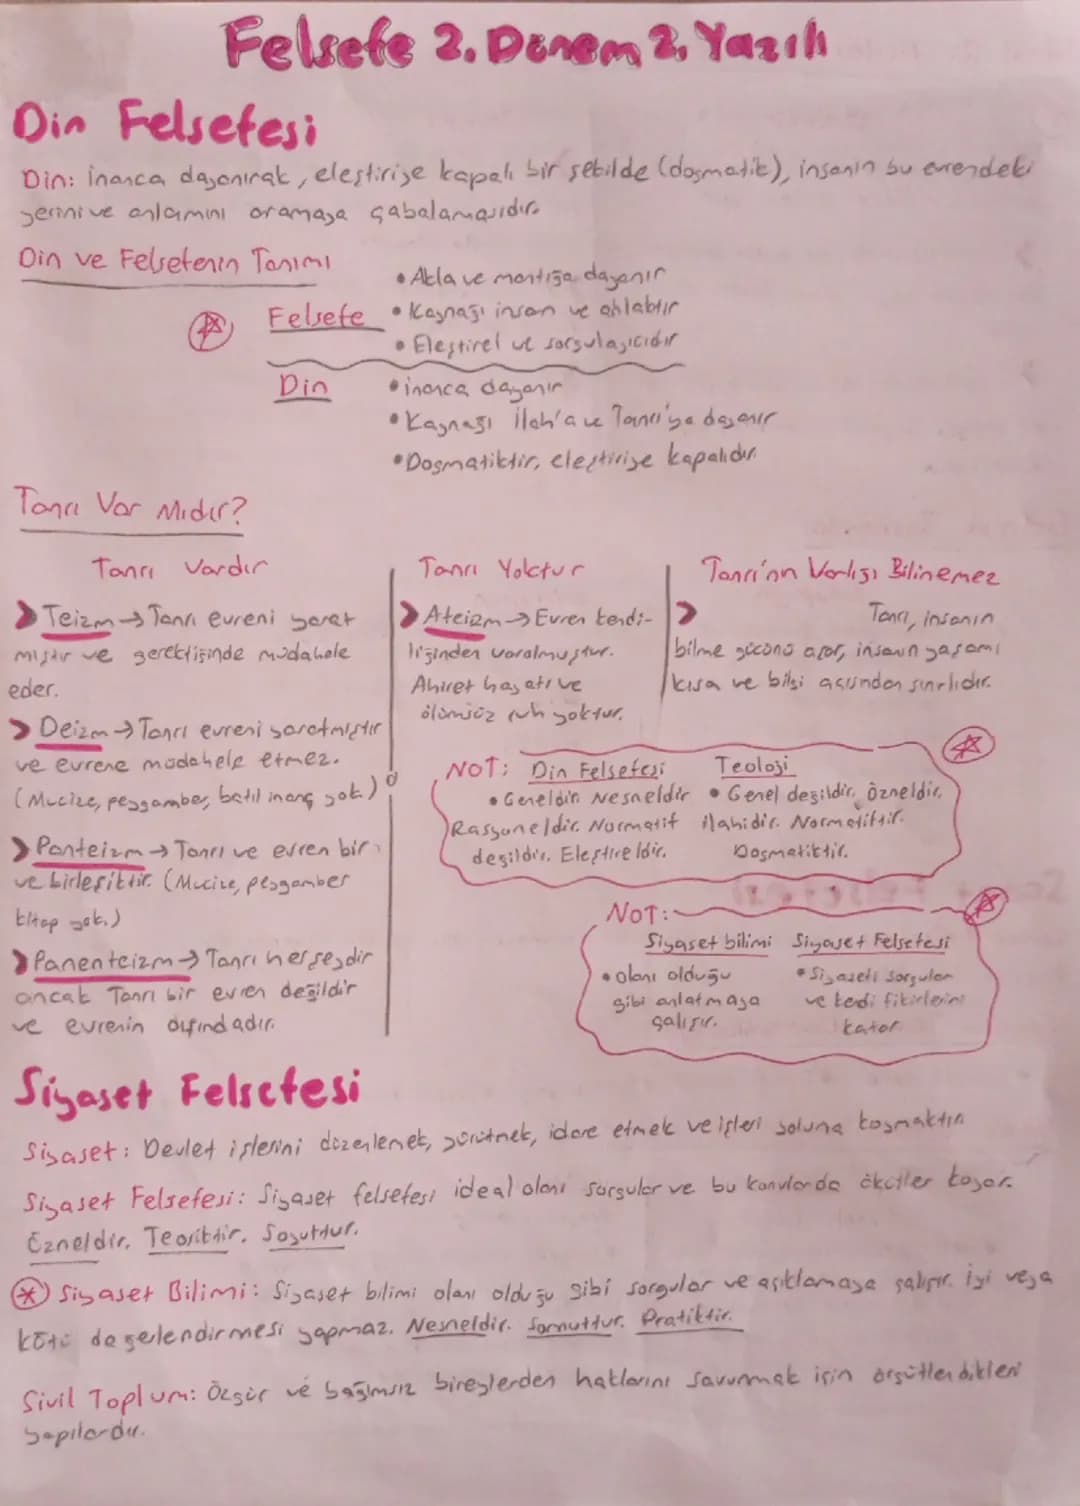 Felsefe 2. Dönem 2. Yazılı
Din Felsefesi
Din: inanca dayanırak, eleştiriye kapalı bir şekilde (dogmatik), insanın bu evrendeki
yerini ve anlamını aramaya çabalamasıdır.
Din ve Felsefenin Tanımı
• Akla ve mantığa dayanır
Felsefe • Kaynağı insan ve ahlaktır
• Eleştirel ve sorgulayıcıdır
Din • inanca dayanır
• Kaynağı ilah'a ve Tanrı'ya dayanır
• Dogmatiktir, eleştiriye kapalıdır.
Tanrı Var Mıdır?
Tanrı Vardır
Teizm → Tanrı evreni yarat
mıştır ve gerektiğinde müdahale
eder.
Deizm → Tanrı evreni yaratmıştır
ve evrene müdahele etmez.
(Mucize, peygamber, batıl inanç yok.)
Panteizm → Tanrı ve evren bir
ve birleşiktir. (Mucize, peygamber
kitap yok.)
Panenteizm → Tanrı herşeydir
ancak Tanrı bir evren değildir
ve evrenin dışındadır.
Tanrı Yoktur
Ateizm → Evren kendi-
liğinden varolmuştur.
Ahiret hayatı ve
ölümsüz ruh yoktur.
Tanrı'nın Varlığı Bilinemez
Tanrı, insanın
bilme gücünü aşar, insanın yaşamı
kısa ve bilgi açısından sınırlıdır.
NOT: Din Felsefesi Teoloji
• Geneldir. Nesneldir • Genel değildir. Özneldir.
Rasyoneldir. Normatif ilahidir. Normatiftir.
değildir. Eleştireldir. Dogmatiktir.
NOT:
Siyaset bilimi Siyaset Felsefesi
• olanı olduğu • Siyaseti sorgular
gibi anlatmaya ve kedi fikirlerini
çalışır. katar.
Siyaset Felsefesi
Siyaset: Devlet işlerini düzenlemek, yürütmek, idare etmek ve işleri yoluna koymaktır.
Siyaset Felsefesi: Siyaset felsefesi ideal olanı sorgular ve bu konularda ölçütler koyar.
Özneldir. Teoriktir. Soyuttur.
Siyaset Bilimi: Siyaset bilimi olanı olduğu gibi sorgular ve açıklamaya çalışır. İyi veya
kötü değerlendirmesi yapmaz. Nesneldir. Somuttur. Pratiktir.
Sivil Toplum: Özgür ve bağımsız bireylerden haklarını savunmak için örgütlendikleri
yapılardır.